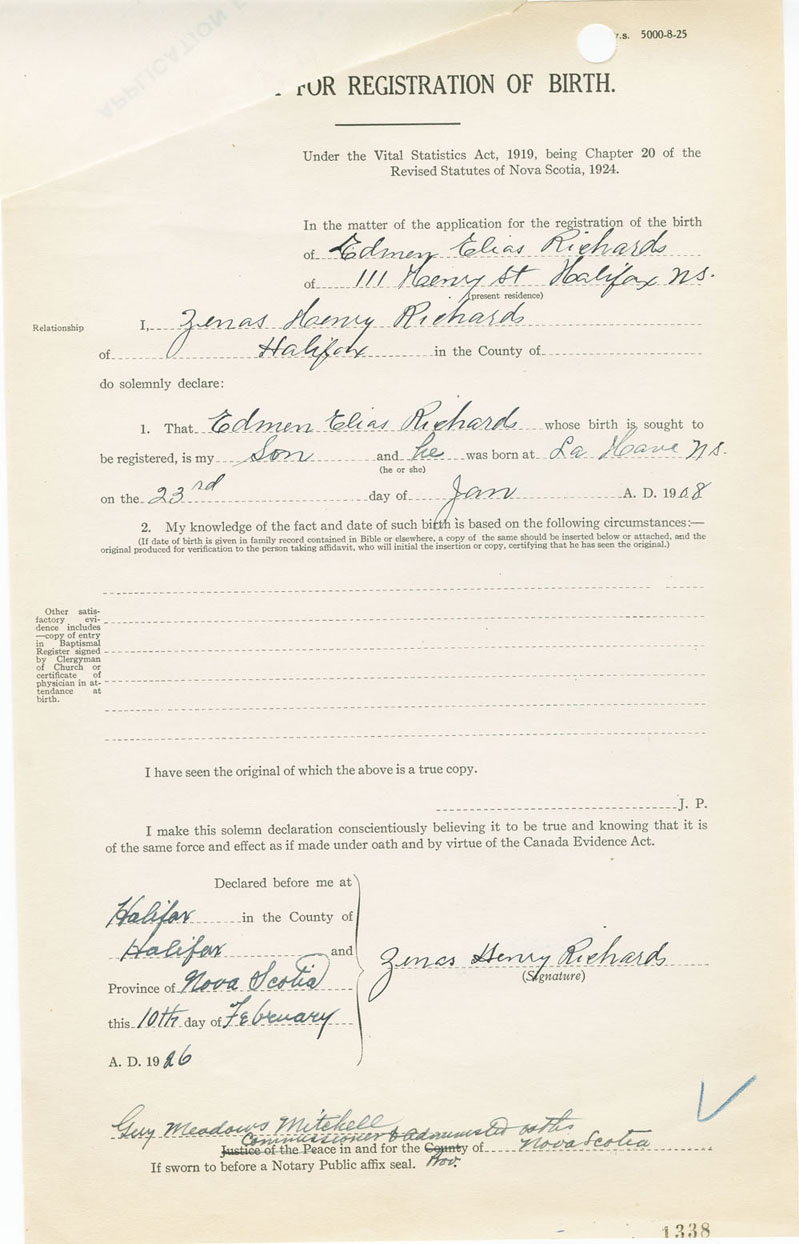 V.S. 5000-8-25
FOR REGISTRATION OF BIRTH.
Under the Vital Statistics Act, 1919, being Chapter 20 of the
Revised Statutes of Nova Scotia, 1924.
In the matter of the application for the registration of the birth
of Edmen Elias Richards
of 111 Henry St Halifax N.S.
(present residence)
Relationship I, Zenas Henry Richards
of Halifax in the County of
do solemnly declare:
1. That Edmen Elias Richards whose birth is sought to
be registered, is my Son and he was born at La Have N.S.
(he or she)
on the 23rd day of Jan A. D. 1908
2. My knowledge of the fact and date of such birth is based on the following circumstances:—
(If date of birth is given in family record contained in Bible or elsewhere, a copy of the same should be inserted below or attached, and the
original produced for verification to the person taking affidavit, who will initial the insertion or copy, certifying that he has seen the original.)
Other satis-
factory evi-
dence includes
—copy of entry
in Baptismal
Register signed
by Clergyman
of Church or
certificate of
physician in at-
tendance at
birth.
I have seen the original of which the above is a true copy.
J. P.
I make this solemn declaration conscientiously believing it to be true and knowing that it is
of the same force and effect as if made under oath and by virtue of the Canada Evidence Act.
Declared before me at
Halifax in the County of
Halifax and
Province of Nova Scotia
this 10th day of February
A. D. 1926
Zenas Henry Richards
(Signature)
Guy Meadows Mitchell
Commissioner to administed oaths
Justice of the Peace in and for the County of Nova Scotia
Prov.
If sworn to before a Notary Public affix seal.
1338